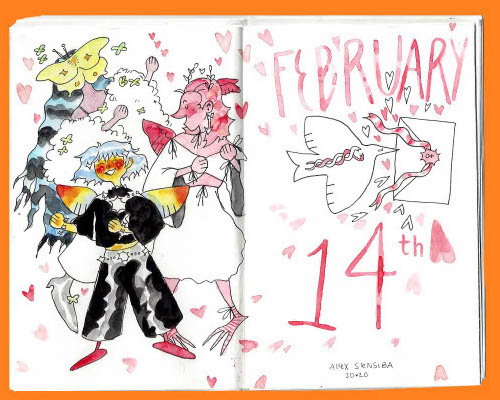 FEBRUARY
14th
ALEX SENSIBA
2020